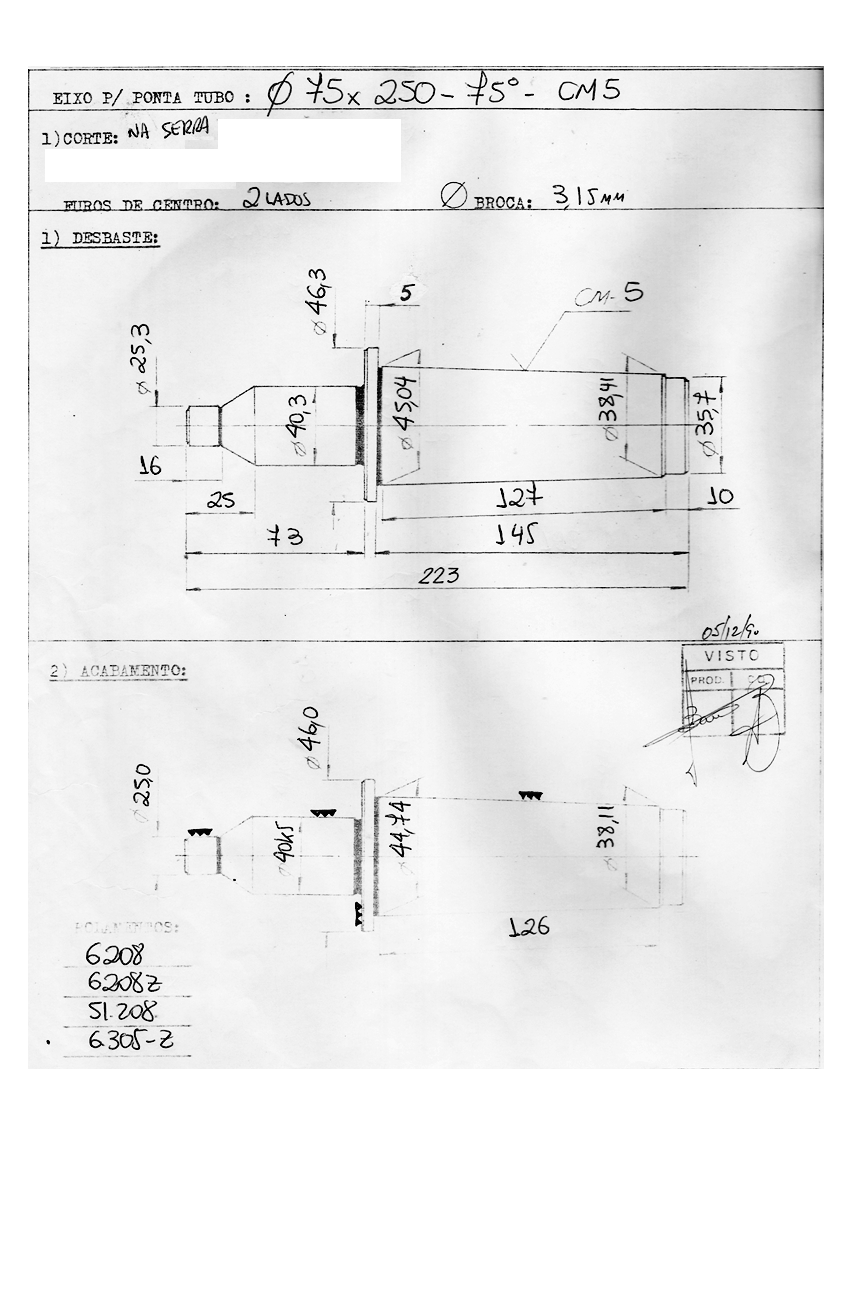 EIXO P/ PONTA TUBO: Ø 75x 250- 75°- CM5
1)CORTE: NA SERRA
FUROS DE CENTRO: 2 LADOS Ø BROCA: 3,15MM
1) DESBASTE:
ø 46,3
5
CM-5
ø 25,3
ø 40,3
ø 45,04
ø 38,41
ø 35,7
16
25
127
10
73
145
223
05/12/90
VISTO
PROD. CQ
2) ACABAMENTO:
ø 46,0
ø 25,0
ø 40k5
ø 44,74
ø 38,11
126
ROLAMENTOS:
6208
6208Z
51.208
6305-Z